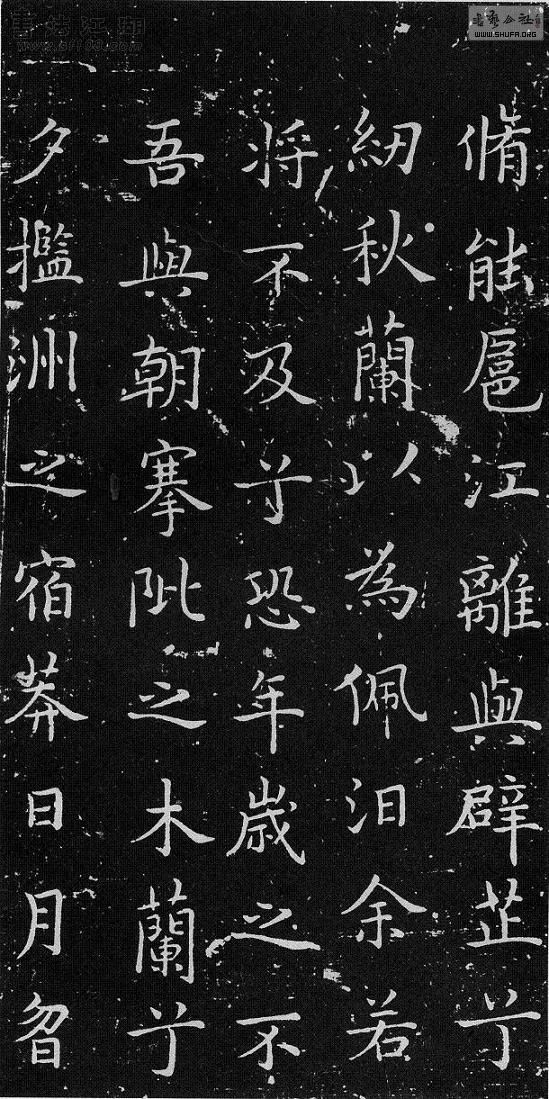 脩能扈江離與辟芷兮
紉秋蘭以為佩汨余若
将不及兮恐年歲之不
吾與朝搴阰之木蘭兮
夕㩜洲之宿莽日月曶
书艺公社
WWW.SHUFA.ORG
书法江湖